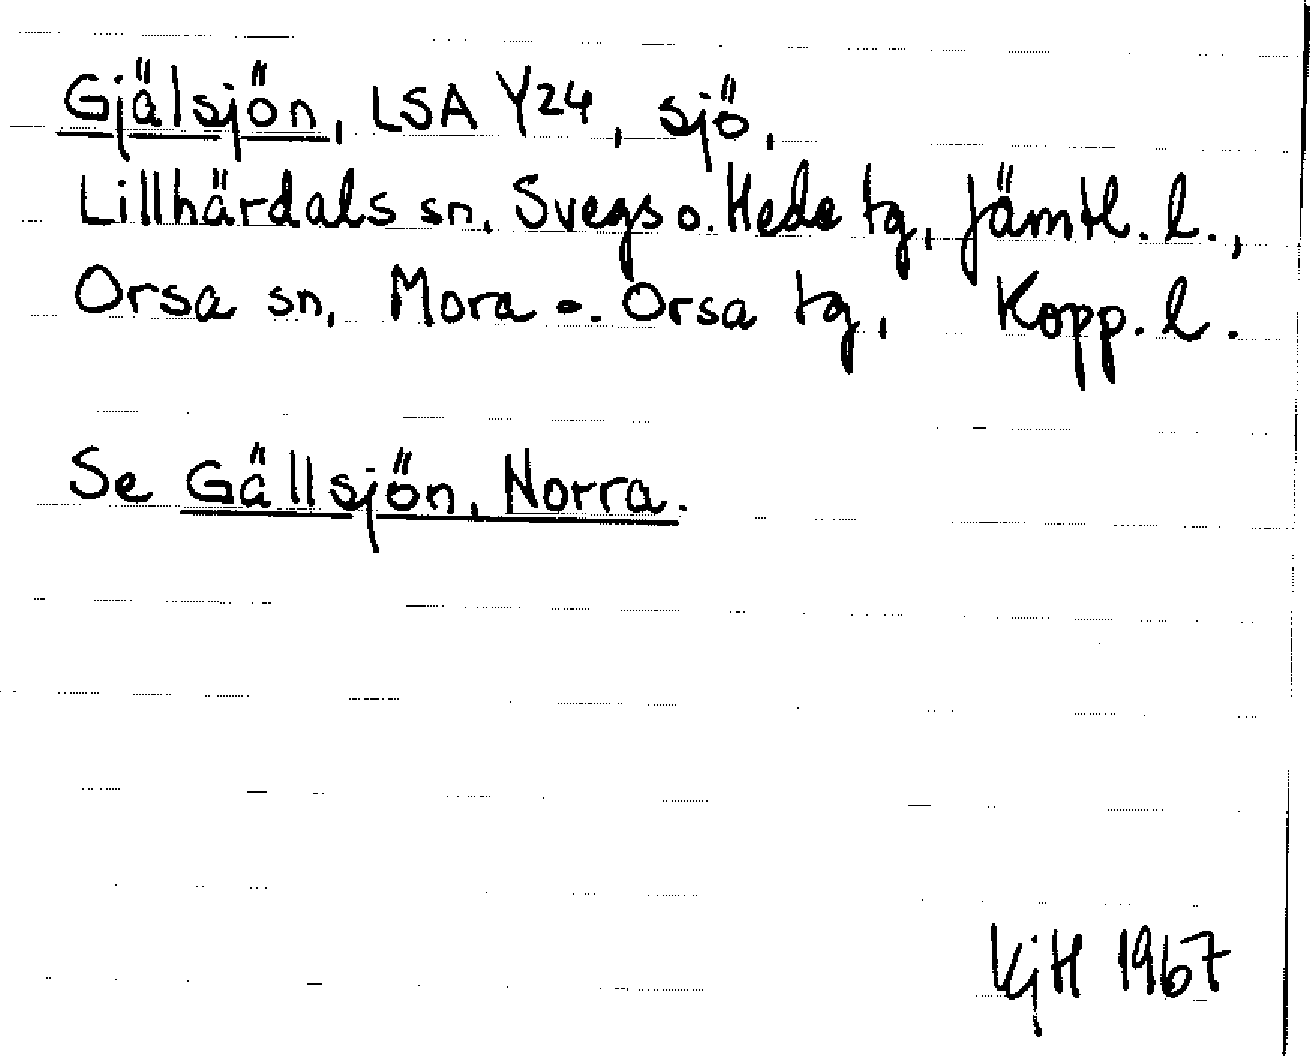 Gjälsjön, LSA Y24, sjö,
Lillhärdals sn, Svegs o. Hede tg, Jämtl. l.,
Orsa sn, Mora o. Orsa tg, Kopp. l.
Se Gällsjön, Norra.
KjH 1967